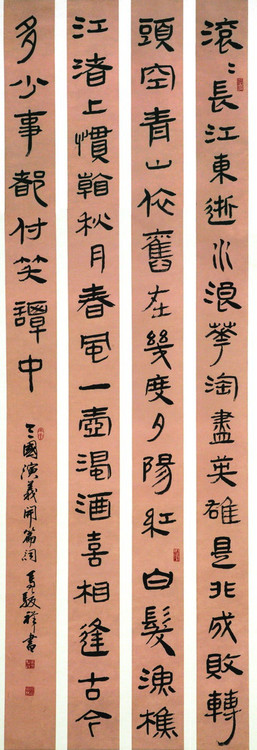 滾〻長江東逝水浪華淘盡英雄是非成敗轉
頭空青山依舊在幾度夕陽紅白髮漁樵
江渚上慣看秋月春風一壺濁酒喜相逢古今
多少事都付笑譚中
三國演義開篇詞 馬駿祥書